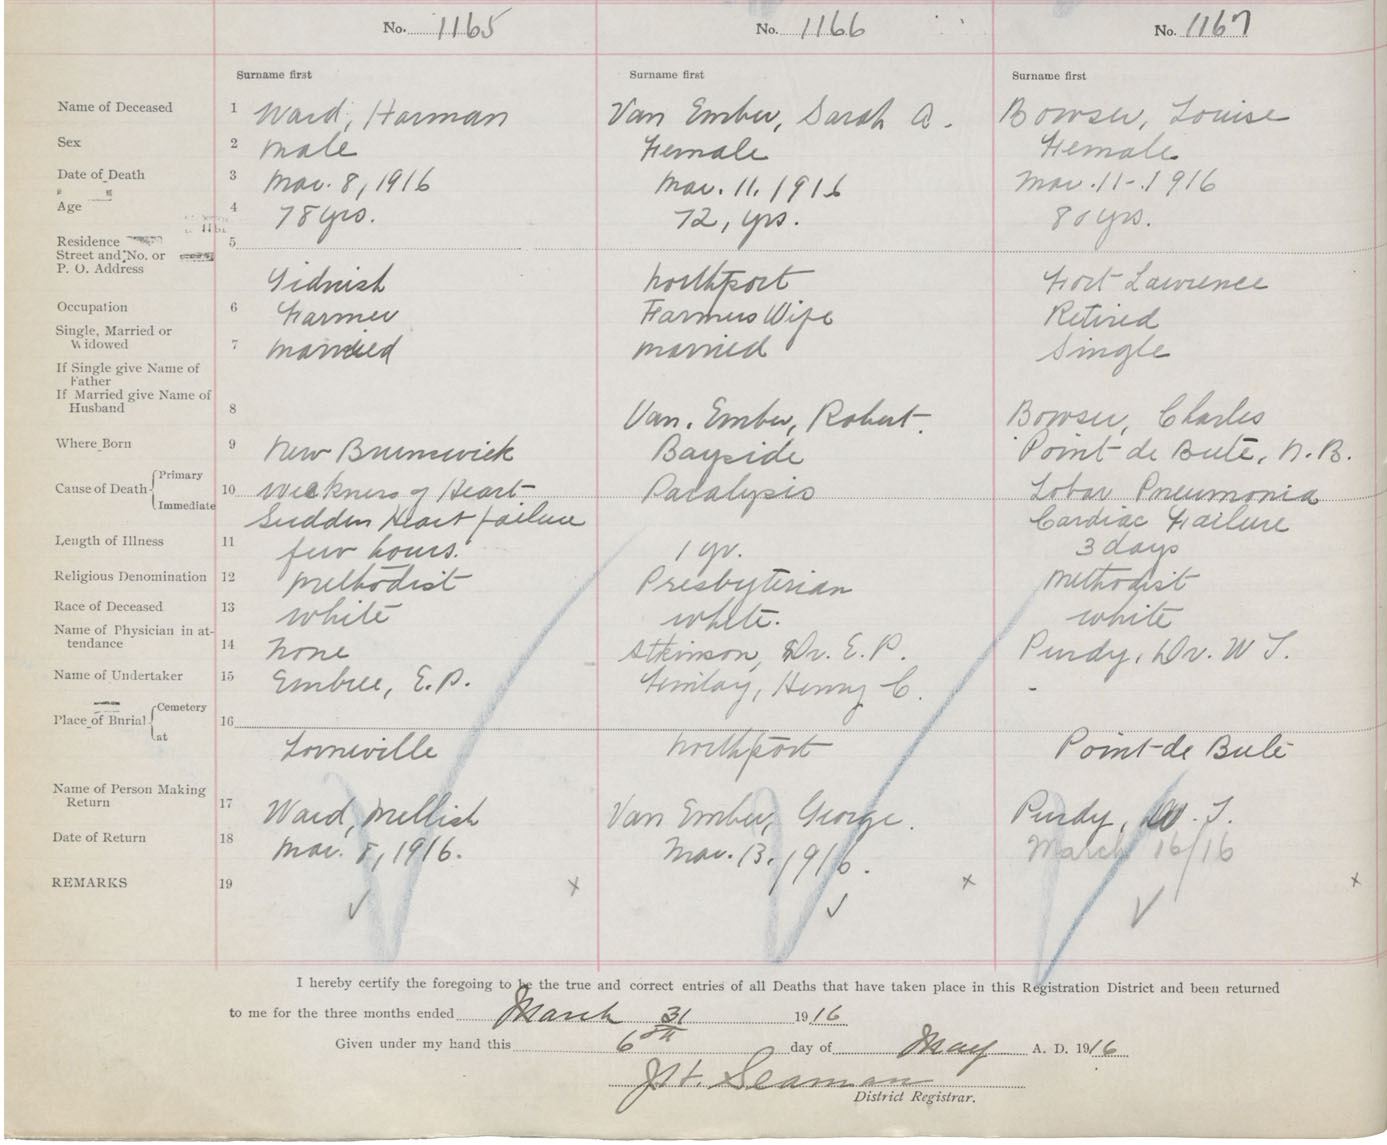 No. 1165 No. 1166 No. 1167
Surname first Surname first Surname first
Name of Deceased 1 Ward, Harman Van Ember, Sarah A. Bowser, Louise
Sex 2 male Female Female
Date of Death 3 Mar. 8, 1916 Mar. 11. 1916 Mar. 11-1916
Age 4 78 yrs. 72, yrs. 80 yrs.
Residence 5
Street and No. or
P. O. Address
Tidnish Northport Fort Lawrence
Occupation 6 Farmer Farmers Wife Retired
Single, Married or
Widowed 7 married married Single
If Single give Name of
Father
If Married give Name of
Husband 8 Van. Ember, Robert. Bowser, Charles
Where Born 9 New Brunswick Bayside Point de Bute, N.B.
Cause of Death Primary 10 Weekness of Heart Paralysis Lobar Pneumonia
Immediate Sudden Heart failure Cardiac Failure
Length of Illness 11 few hours. 1 yr. 3 days
Religious Denomination 12 Methodist Presbyterian Methodist
Race of Deceased 13 white white. white
Name of Physician in at-
tendance 14 None Atkinson, Dr. E. P. Purdy, Dr. W T.
Name of Undertaker 15 Embree, E. P. Henry C. -
Place of Burial Cemetery 16
at Lorneville Northport Point-de Bute
Name of Person Making
Return 17 Ward, Mellish Van Ember, George. Purdy, W. T.
Date of Return 18 Mar. 8, 1916. Mar. 13. 1916. March 16/16
REMARKS 19 x x x
I hereby certify the foregoing to be the true and correct entries of all Deaths that have taken place in this Registration District and been returned
to me for the three months ended March 31st 1916
Given under my hand this 6th day of May A. D. 1916
J. H. Seaman
District Registrar.